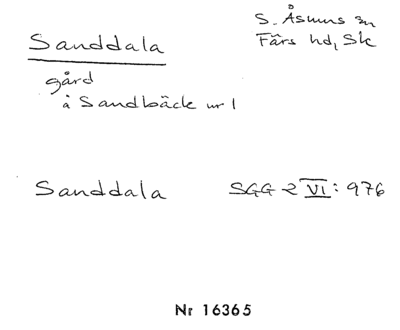 Sanddala
S. Åsums sn
Färs hd, Sk
gård
å Sandbäck nr 1
Sanddala SGG 2 VI: 976
Nr 16365